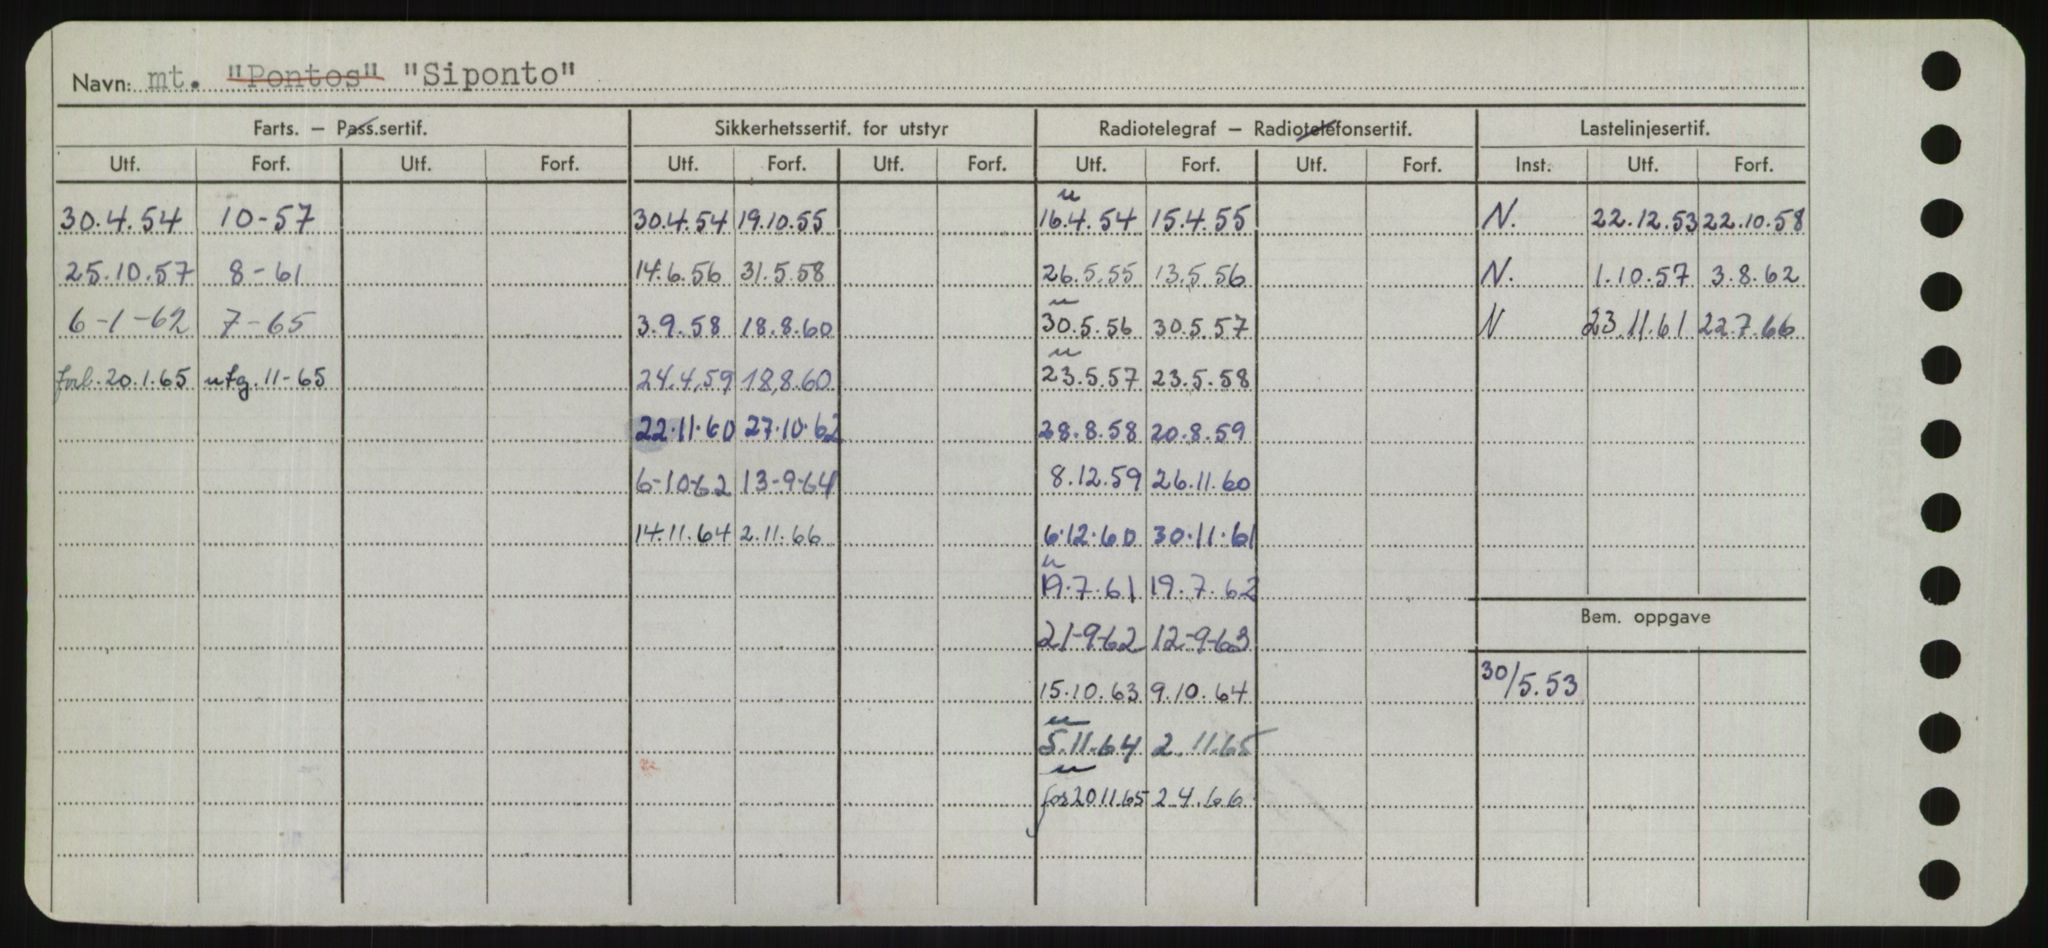 Navn: mt. "Pontos" "Siponto"
Farts. – Pass.sertif. Sikkerhetssertif. for utstyr Radiotelegraf – Radiotelefonsertif. Lastelinjesertif.
Utf. Forf. Utf. Forf. Utf. Forf. Utf. Forf. Utf. Forf. Utf. Forf. Inst. Utf. Forf.
u
30.4.54 10-57 30.4.54 19.10.55 16.4.54 15.4.55 N. 22.12.53 22.10.58
25.10.57 8-61 14.6.56 31.5.58 26.5.55 13.5.56 N. 1.10.57 3.8.62
u
6-1-62 7-65 3.9.58 18.8.60 30.5.56 30.5.57 N 23.11.61 22.7.66
u
forl. 20.1.65 utg. 11-65 24.4.59 18.8.60 23.5.57 23.5.58
22.11.60 27.10.62 28.8.58 20.8.59
6-10-62 13-9-64 8.12.59 26.11.60
14.11.64 2.11.66 6.12.60 30.11.61
u
19.7.61 19.7.62
21-9-62 12-9-63
Bem. oppgave
15.10.63 9.10.64 30/5.53
u
5.11.64 2.11.65
u
for 20 11 65 2.4.66